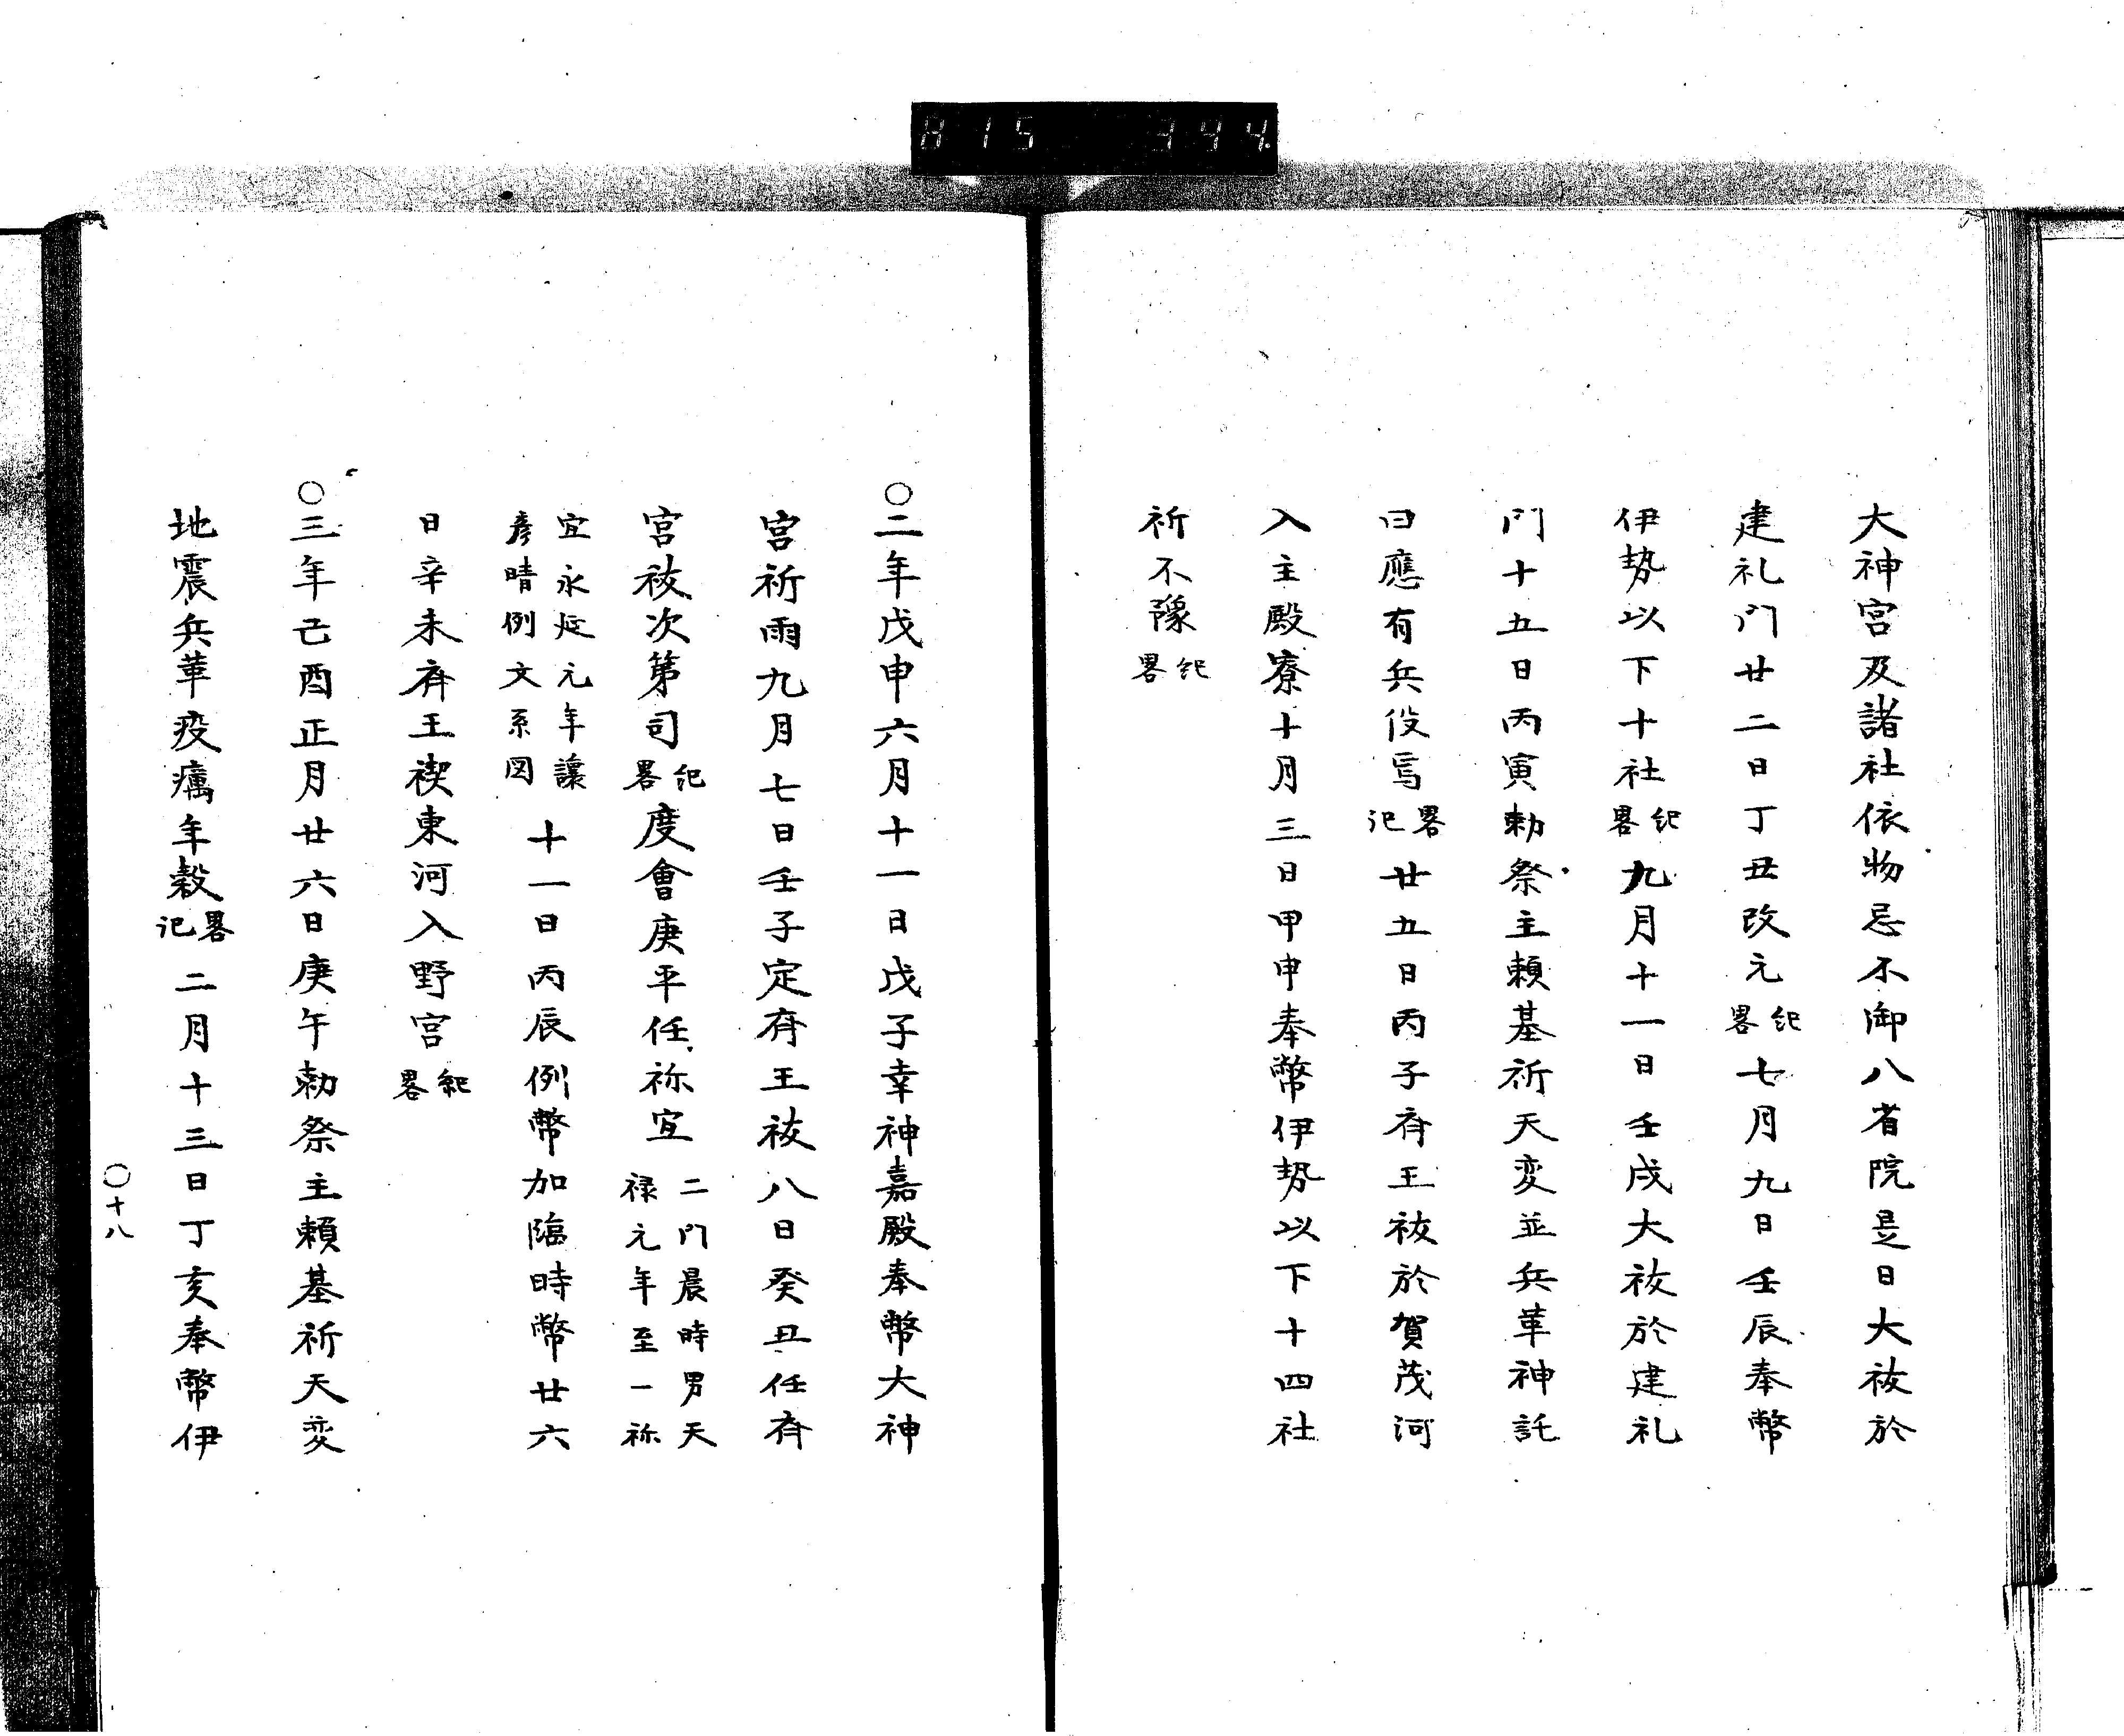 815 344
大神宮及諸社依物忌不御八省院是日大祓於
建礼門廿二日丁丑改元紀畧七月九日壬辰奉幣
伊勢以下十社紀畧九月十一日壬戌大祓於建礼
門十五日丙寅勅祭主頼基祈天変並兵革神託
曰應有兵役焉畧记廿五日丙子斉王祓於賀茂河
入主殿寮十月三日甲申奉幣伊勢以下十四社
祈不豫紀畧
〇二年戊申六月十一日戊子幸神嘉殿奉幣大神
宮祈雨九月七日壬子定斉王祓八日癸丑任斉
宮祓次第司紀畧度會庚平任祢宜二門晨時男天禄元年至一祢
宜永延元年譲彦晴例文系図十一日丙辰例幣加臨時幣廿六
日辛未斉王禊東河入野宮紀畧
〇三年己酉正月廿六日庚午勅祭主頼基祈天変
地震兵革疫癘年穀畧记二月十三日丁亥奉幣伊
〇十八